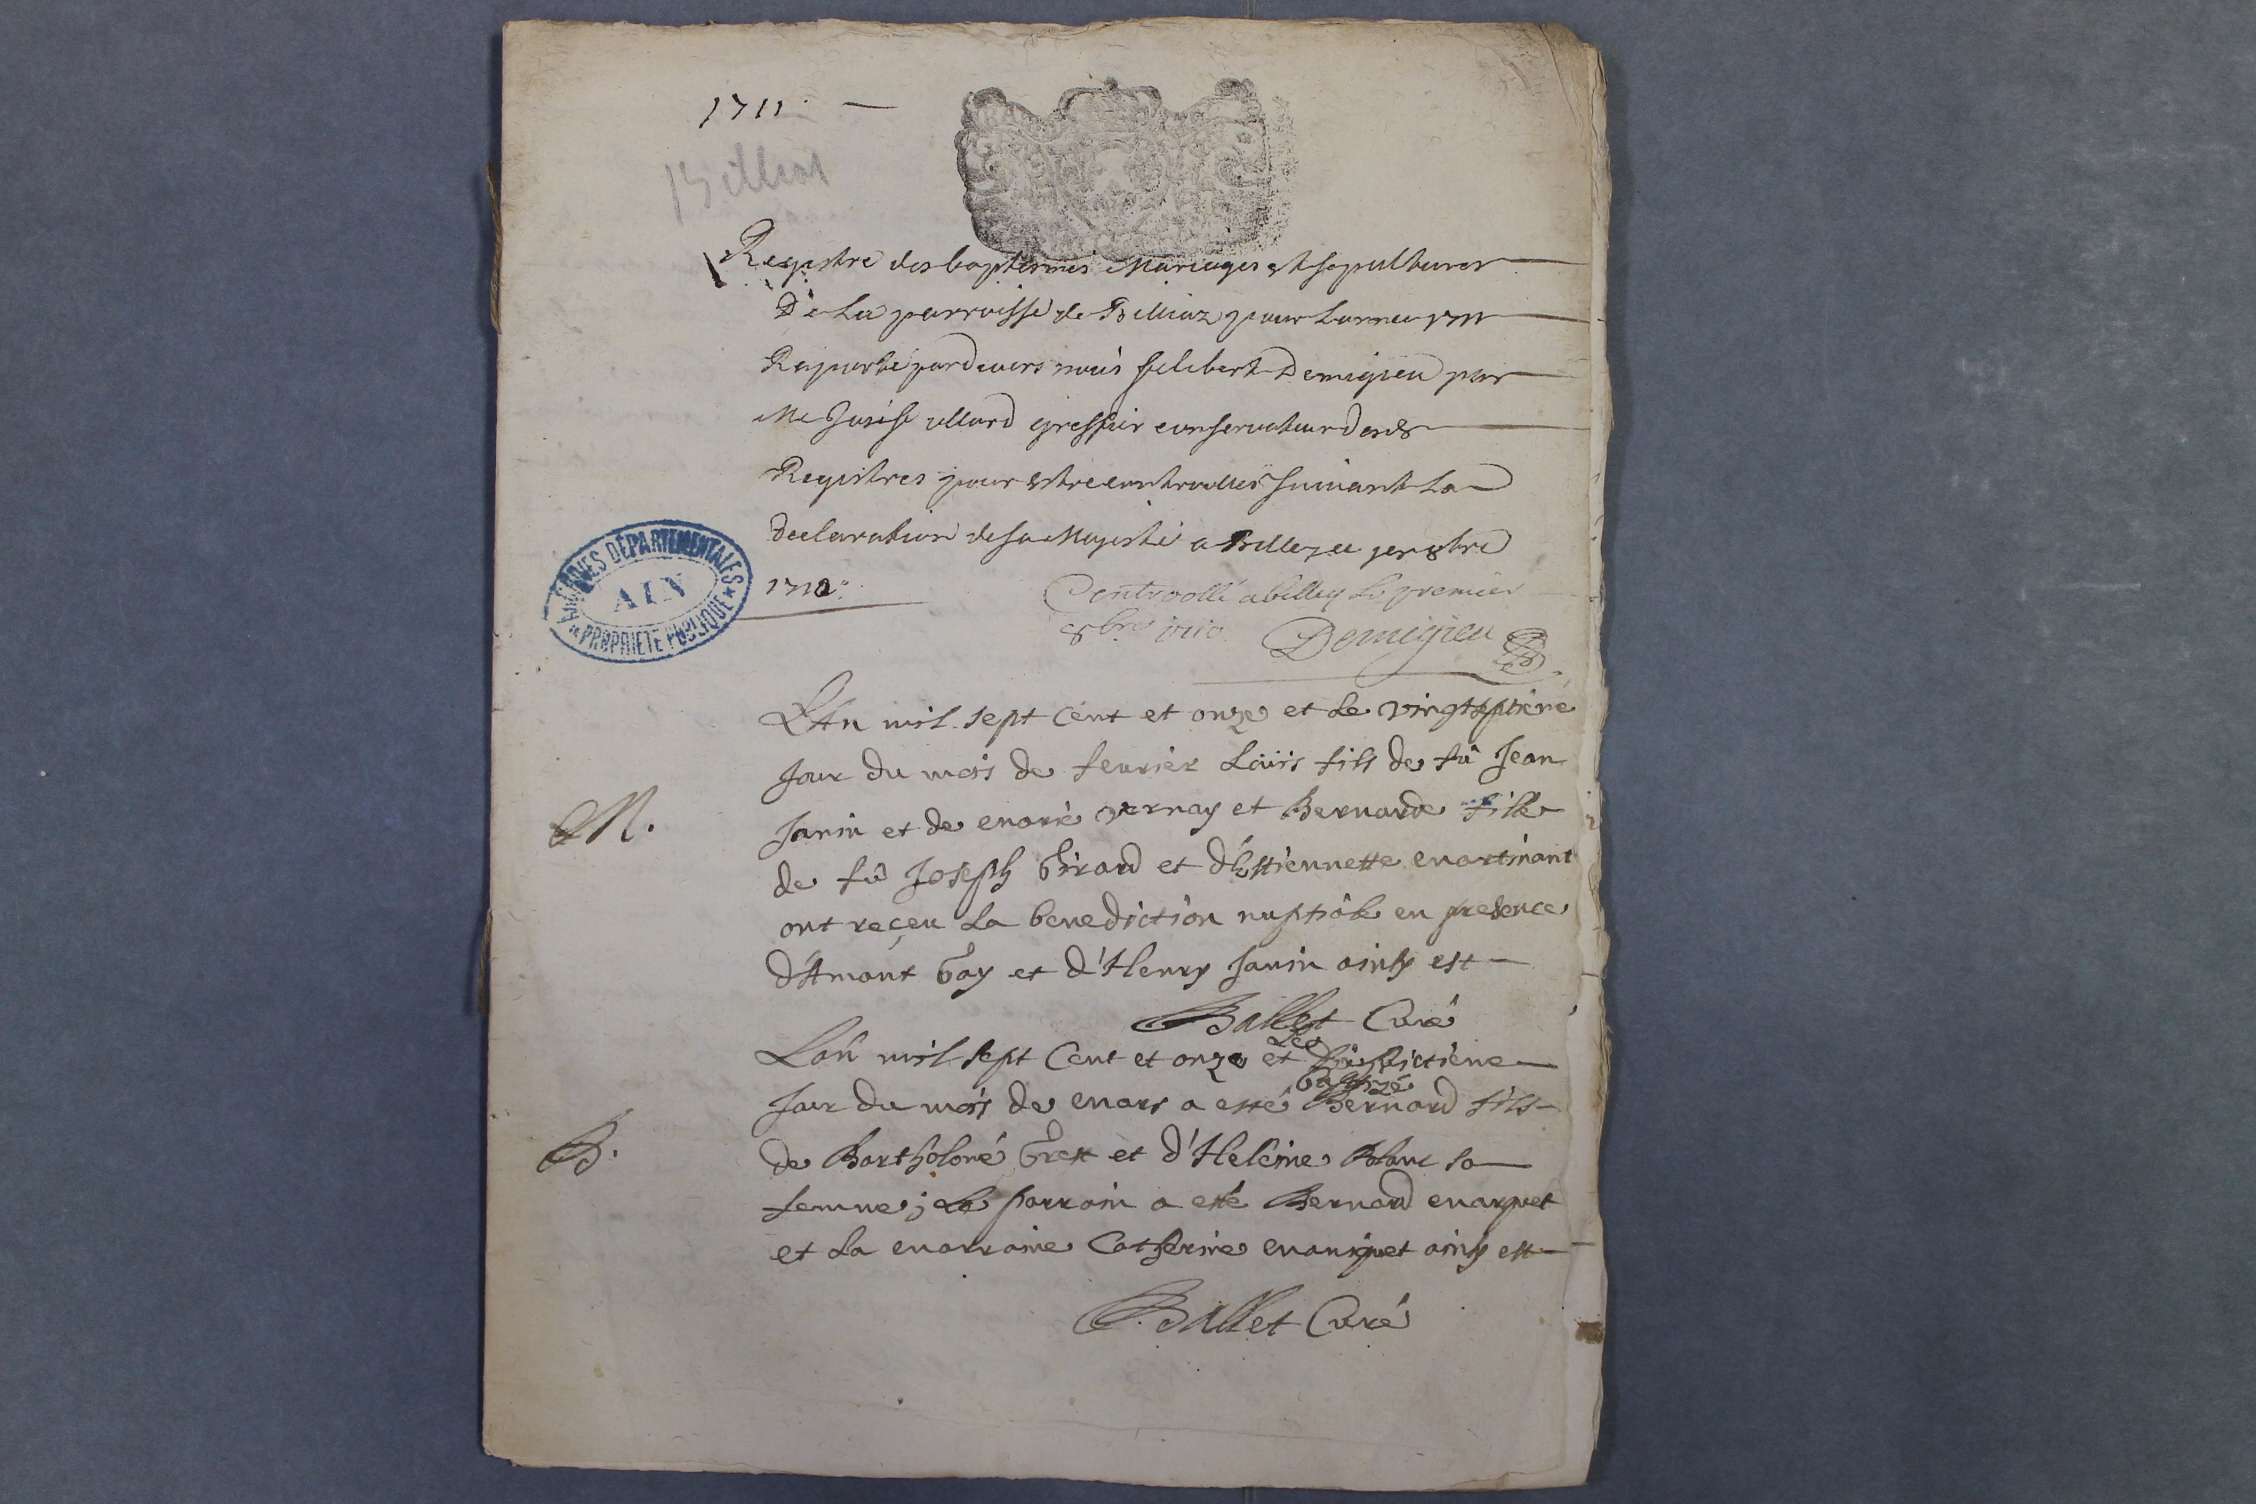 1711. —
Billiat
Registre des baptesmes Mariages et sepultures
De La parroisse de Billiaz pour Lannee 1711
Raporté pardevers nous filibert Demigieu par
Me Josesf allard greffier conservateur desds
Registres pour estre controlles suivant La
Declaration de sa Majesté a Belley ce 1er 8bre
1710.
Controollé a belley le premier
8bre 1710 Demigieu
ARCHIVES DÉPARTEMENTALES
AIN
PROPRIETE PUBLIQUE
L'An mil sept Cent et onze et Le vingtseptiéme
Jour du mois de feurier Loüis fils de fû Jean
M. Janin et de marie vernay et Bernarde fille
de fû Joseph Girard et d'Estiennette martinant
ont reçeu La benediction nuptiale en presence
d'Amant Gay et d'Henry Janin ainsy est
Ballet Curé
Le
L'an mil sept Cent et onze et
baptizé
Jour du mois de mars a esté Bernard fils
B. de Bartholomé et d'Heleine Blanc sa
femme; Le parrain a esté Bernard marquet
et La marraine Catherine ainsy est
Ballet Curé